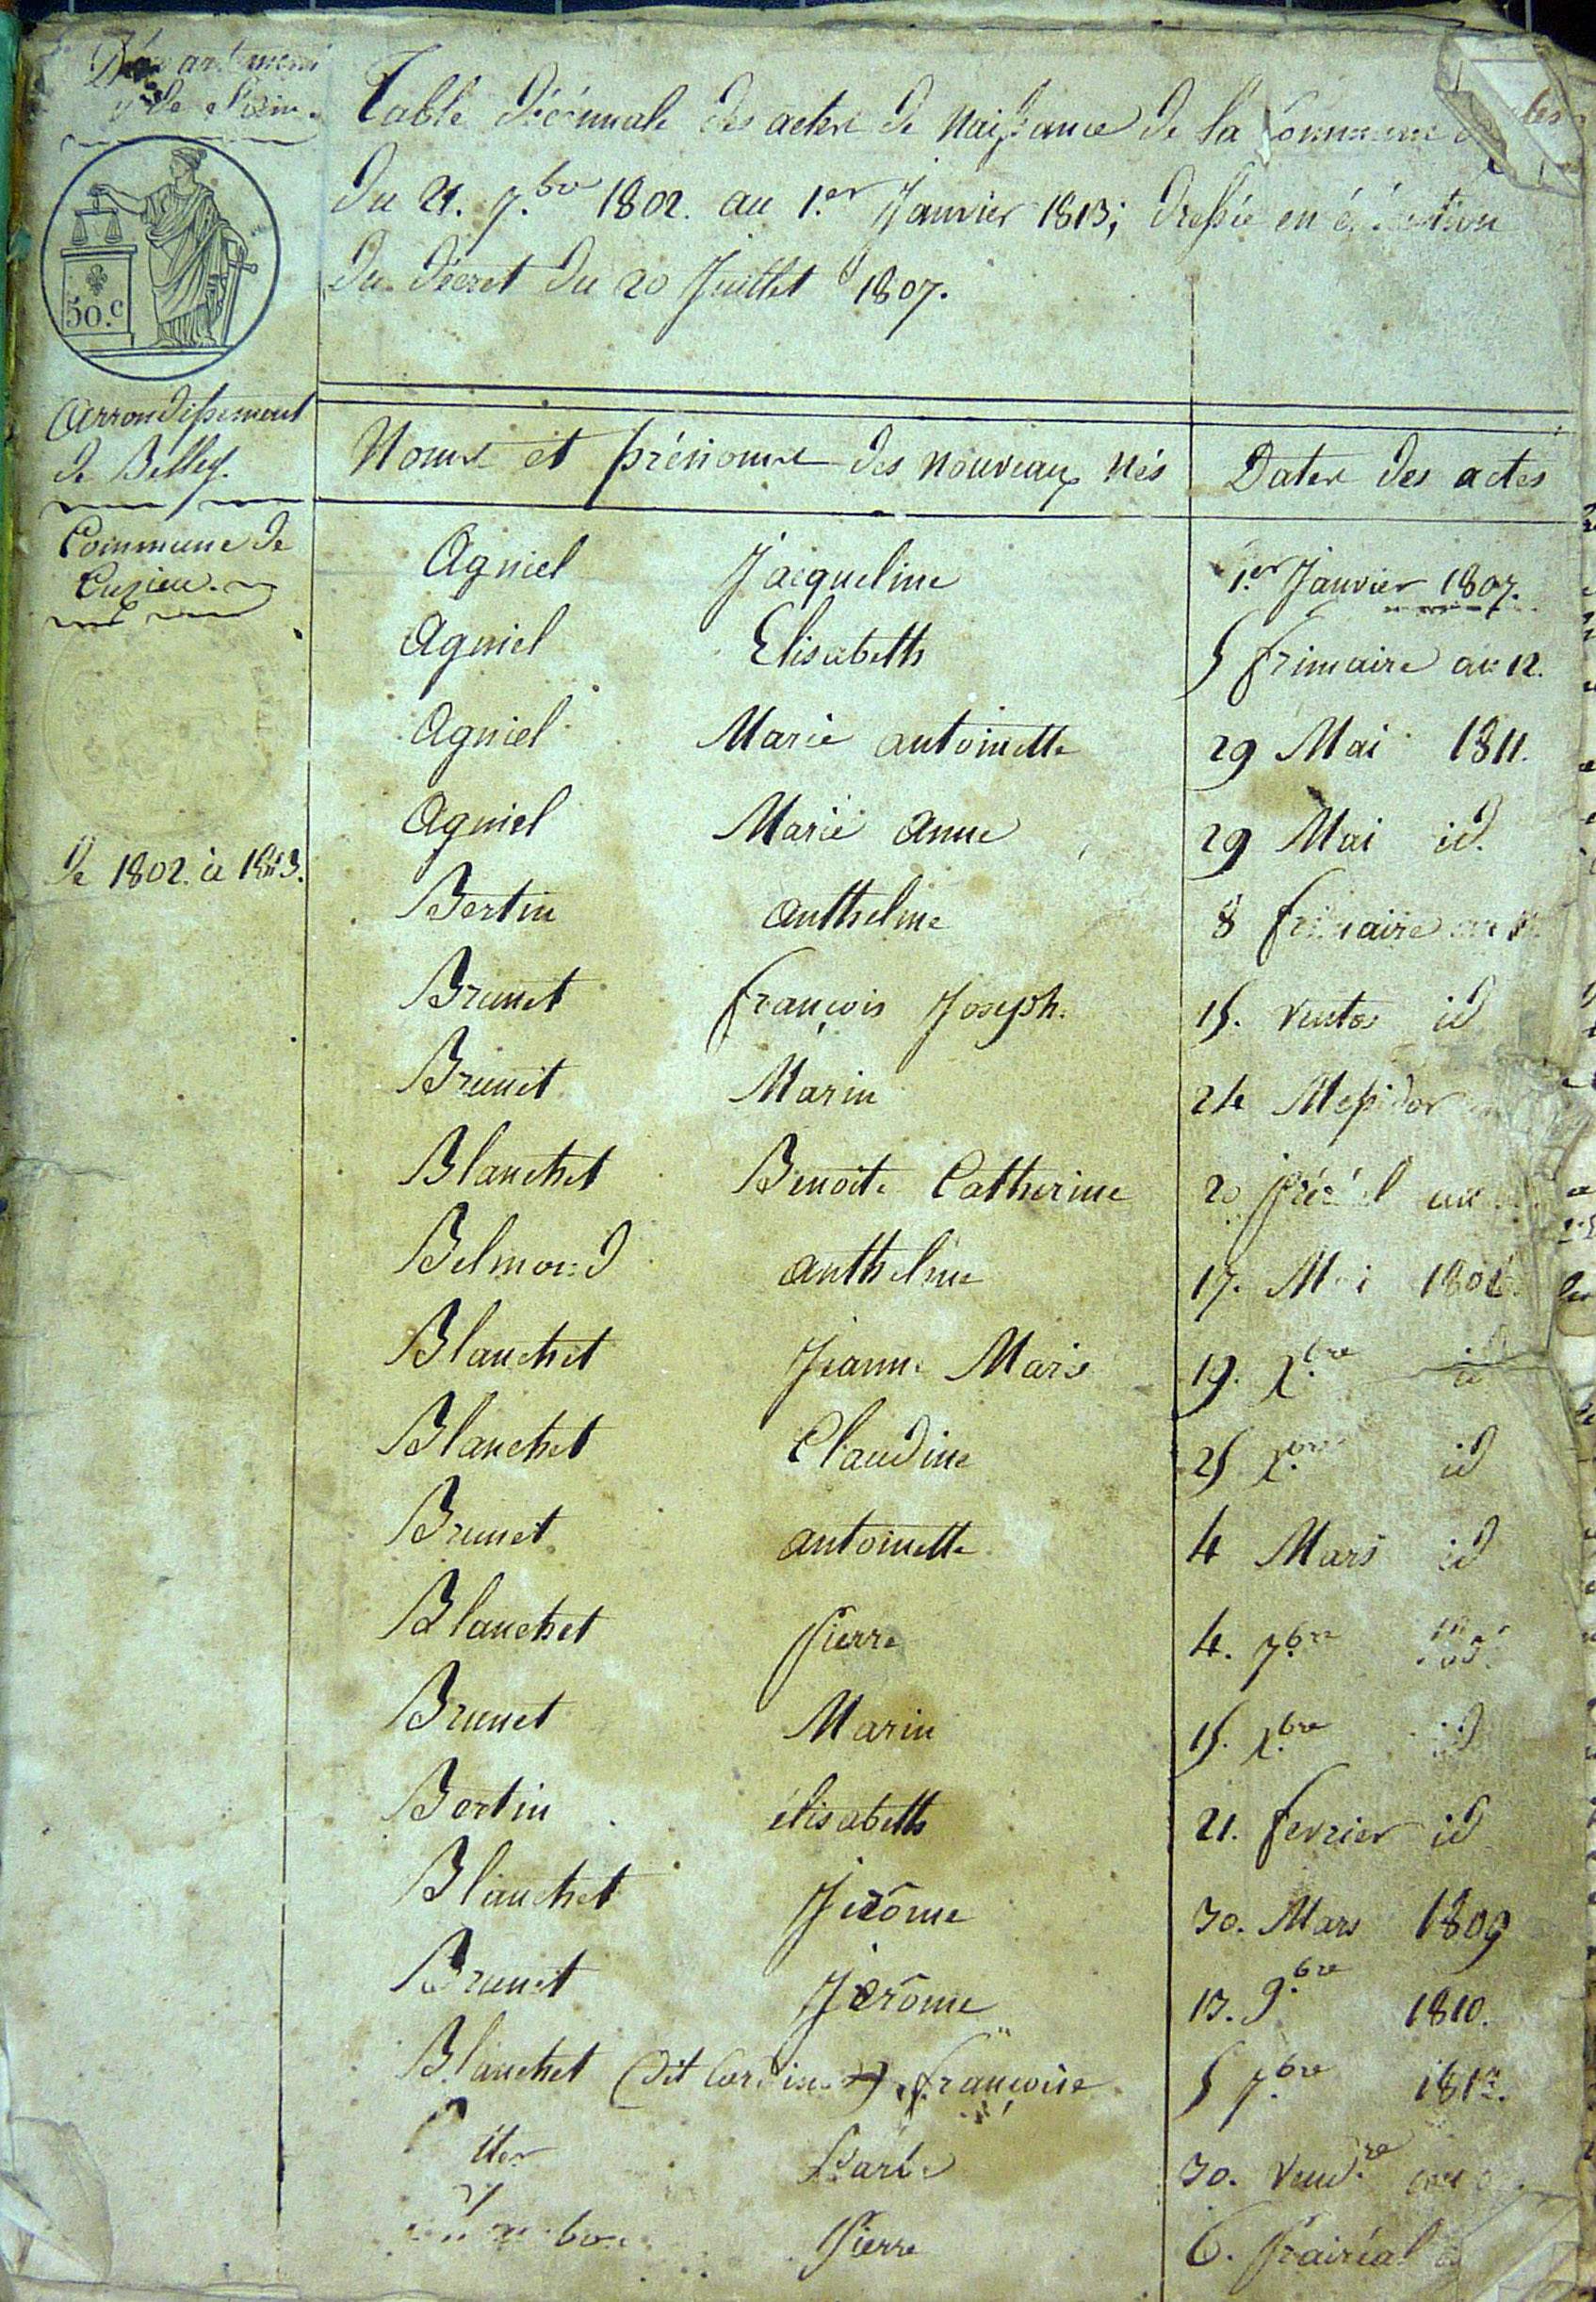 Département
de l'ain.
Table décennale des actes de Naissance de la Commune de
du 21. 7.bre 1802. au 1.er Janvier 1813; dressée en exécution
du Décret du 20 Juillet 1807.
50.c
Arrondissement
de Belley.
Commune de
Cuzieu.
De 1802. à 1813.
Noms et prénoms des nouveaux nés Dates des actes
Agniel Jacqueline 1.er Janvier 1807.
Agniel Elisabeth 5 frimaire an 12.
Agniel Marie antoinette 29 Mai 1811.
Agniel Marie anne 29 Mai id.
Bertin anthelme 8 frimaire an
Brunet françois Joseph. 15. ventos id
Brunet Marin 24 Messidor
Blanchet Benoite Catherine 20 prérial an
Belmond anthelme 17. Mai 1806
Blanchet Jeanne Marie 19. X.bre id
Blanchet Claudine 25 X.bre id
Brunet antoinette 4 Mars id
Blanchet Pierre 4. 7.bre
Brunet Marin 15. X.bre id
Bertin élisabeth 21. fevrier id
Blanchet Jérôme 30. Mars 1809
Brunet Jérôme 13. 9.bre 1810.
Blanchet (dit françoise 5 7.bre 1812.
30. Vend.re
Pierre 6. prairéal